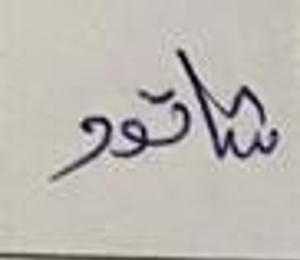 شاتوو